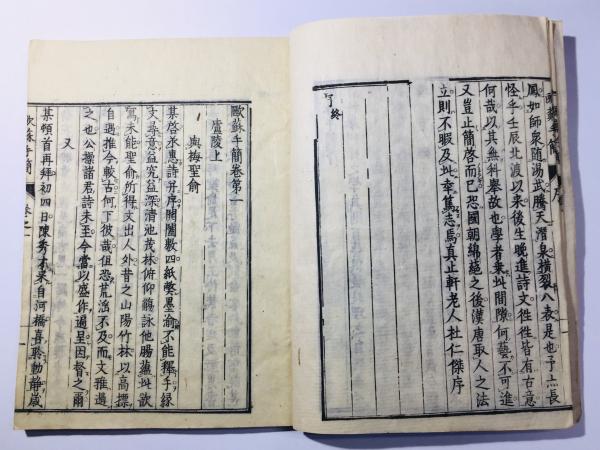 歐蘇手簡 序
鳳如師衆随湯武騰天潛泉横裂八表是也予亡長
怪乎壬辰北渡以来後生晩進詩文徃徃皆有古意
何哉以其無科挙故也學者乗此間隙何藝不可進
又豈止簡啓而已恐國朝綿蕝之後漢唐取人之法
立則不暇及此幸篤志焉真止軒老人杜仁傑序
了終
歐蘇手簡卷第一
廬陵上
與梅聖俞
某啓承惠詩并序開闔數四紙弊墨渝不能釋手縁
文尋意益究益深清池茂林俯仰觴詠他腸蘊此欲
寫未能聖俞所得文出人外昔之山陽竹林以高標
自遇推今較古何下彼哉但恐荒淫不及而文雅過
之也公操諸君詩未至今當以盛作遍呈因督之爾
又
某頓首再拜初四日陳秀才来自河橋喜聆動静歳
歐蘇手簡 卷之一